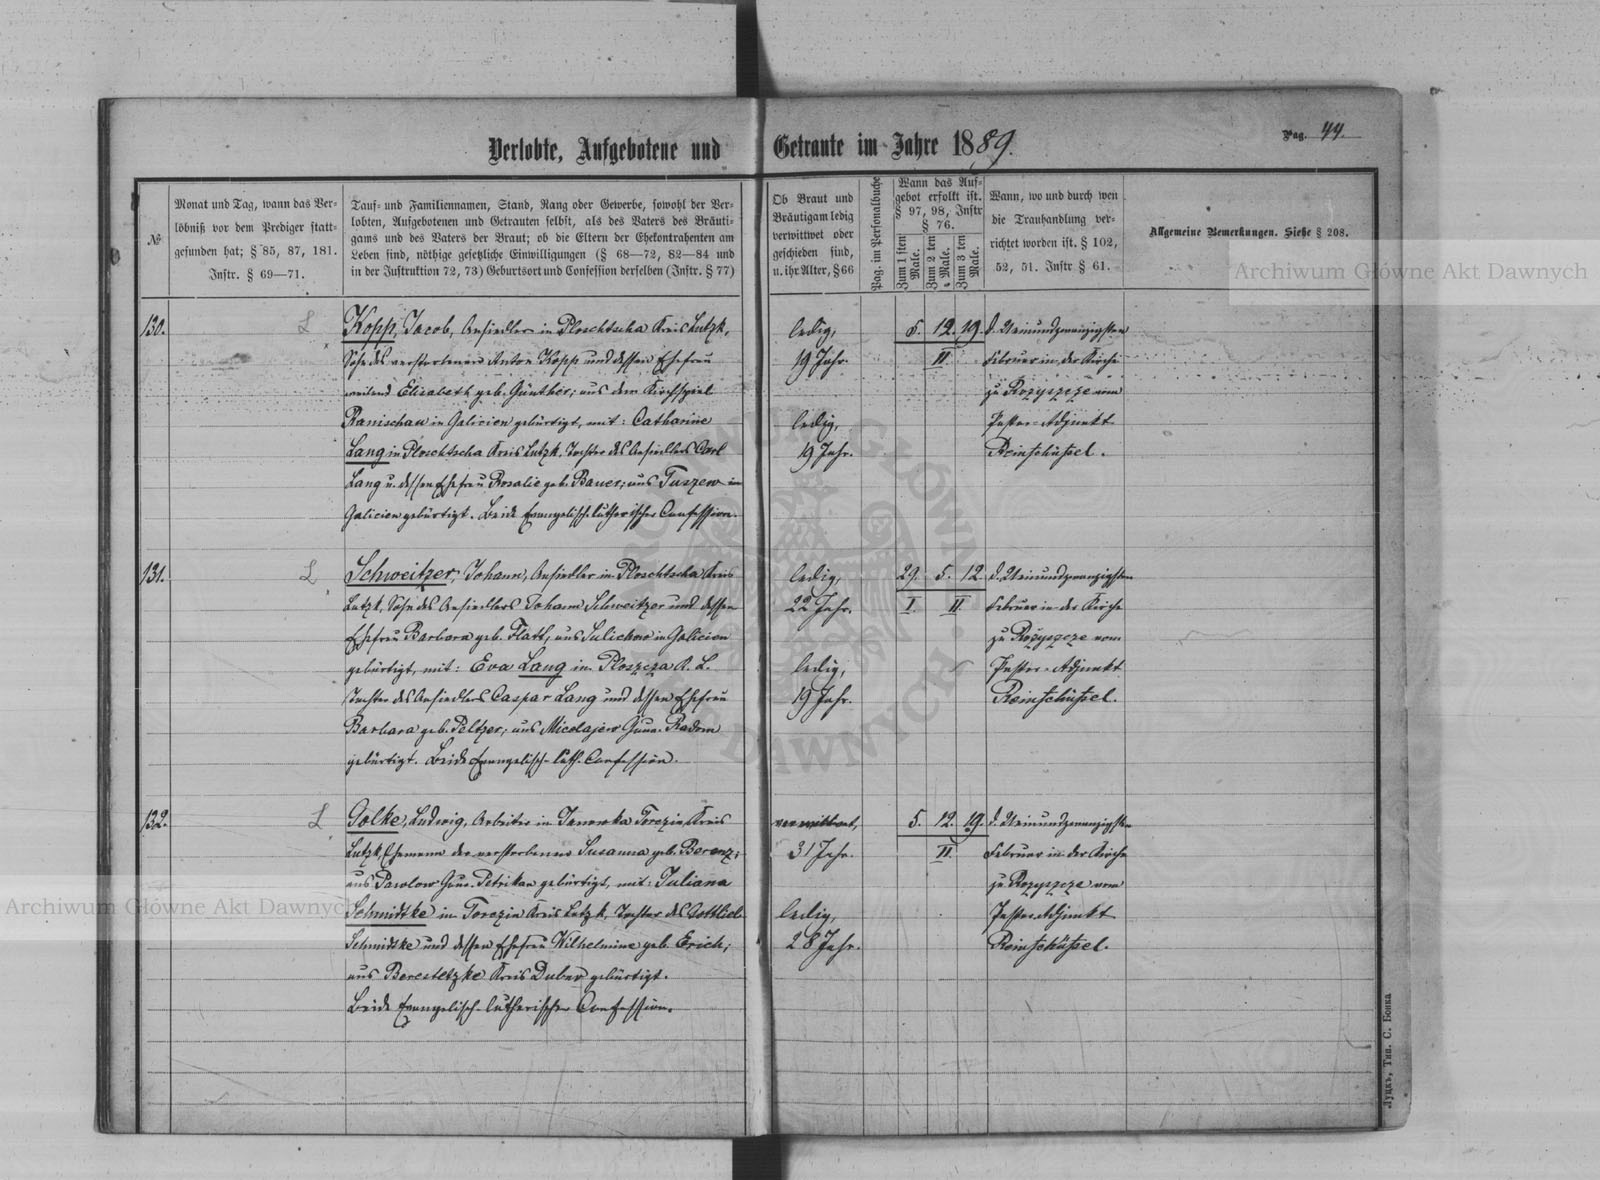 Verlobte, Aufgebotene und Getraute im Jahre 1889.
Pag. 44.
№
Monat und Tag, wann das Ver-
löbniß vor dem Prediger statt-
gefunden hat; § 85, 87, 181.
Instr. § 69—71.
Tauf- und Familiennamen, Stand, Rang oder Gewerbe, sowohl der Ver-
lobten, Aufgebotenen und Getrauten selbst, als des Vaters des Bräuti-
gams und des Vaters der Braut; ob die Eltern der Ehekontrahenten am
Leben sind, nöthige gesetzliche Einwilligungen (§ 68—72, 82—84 und
in der Instruktion 72, 73) Geburtsort und Confession derselben (Instr. § 77)
Ob Braut und
Bräutigam ledig
verwittwet oder
geschieden sind,
u. ihr Alter, §66
Pag. im Personalbuche
Wann das Auf-
gebot erfolgt ist.
§ 97, 98, Instr
§ 76.
Zum 1 sten Male.
Zum 2 ten Male.
Zum 3 ten Male.
Wann, wo und durch wen
die Trauhandlung ver-
richtet worden ist. § 102,
52, 51. Instr § 61.
Allgemeine Bemerkungen. Siehe § 208.
130.
L
Kopp, Jacob, Ansiedler in Ploschtscha Kreis Lutzk,
Sohn des verstorbenen Anton Kopp und dessen Ehefrau
weiland Elisabeth geb. Günther; aus dem Kirchspiel
Ranischau in Galicien gebürtigt, mit: Catharine
Lang in Ploschtscha Kreis Lutzk, Tochter des Ansiedlers Carl
Lang u. dessen Ehefrau Rosalie geb. Bauer; aus Tuszew in
Galicien gebürtigt. Beide Evangelisch-lutherischer Confession.
ledig,
19 Jahr.
ledig,
19 Jahr.
5. 12. 19.
II.
d. Neinundzwanzigsten
Februar in der Kirche
zu Rozyszcze vom
Pastor-Adjunkt
Reinschüssel.
131.
L
Schweitzer, Johann, Ansiedler in Ploschtscha Kreis
Lutzk, Sohn des Ansiedlers Johann Schweitzer und dessen
Ehefrau Barbara geb. Flatt, aus Sulichow in Galicien
gebürtigt, mit: Eva Lang in Ploszcza K. L.
Tochter des Ansiedlers Caspar Lang und dessen Ehefrau
Barbara geb. Peltzer; aus Micolajew Guv. Radom
gebürtigt. Beide Evangelisch-luth. Confession.
ledig,
22 Jahr.
ledig,
19 Jahr.
29. 5. 12.
I. II.
Februar in der Kirche
zu Rozyszcze vom
Pastor-Adjunkt
Reinschüssel.
132.
L
Golke, Ludwig, Arbeiter in Janowka Torczin Kreis
Lutzk, Ehemann der verstorbenen Susanna geb. Berenz;
aus Pawlow Guv. Petrikau gebürtigt, mit: Juliana
Schmidtke in Torczin Kreis Lutzk, Tochter des Gottlieb
Schmidtke und dessen Ehefrau Wilhelmine geb. Erich;
aus Berestetzke Kreis Dubno gebürtigt.
Beide Evangelisch-lutherischer Confession.
verwittwet,
31 Jahr.
ledig,
28 Jahr.
5. 12. 19.
II.
Februar in der Kirche
zu Rozyszcze vom
Pastor-Adjunkt
Reinschüssel.
Луцкъ, Тип. С. Бонка
Archiwum Główne Akt Dawnych
Archiwum Główne Akt Dawnych